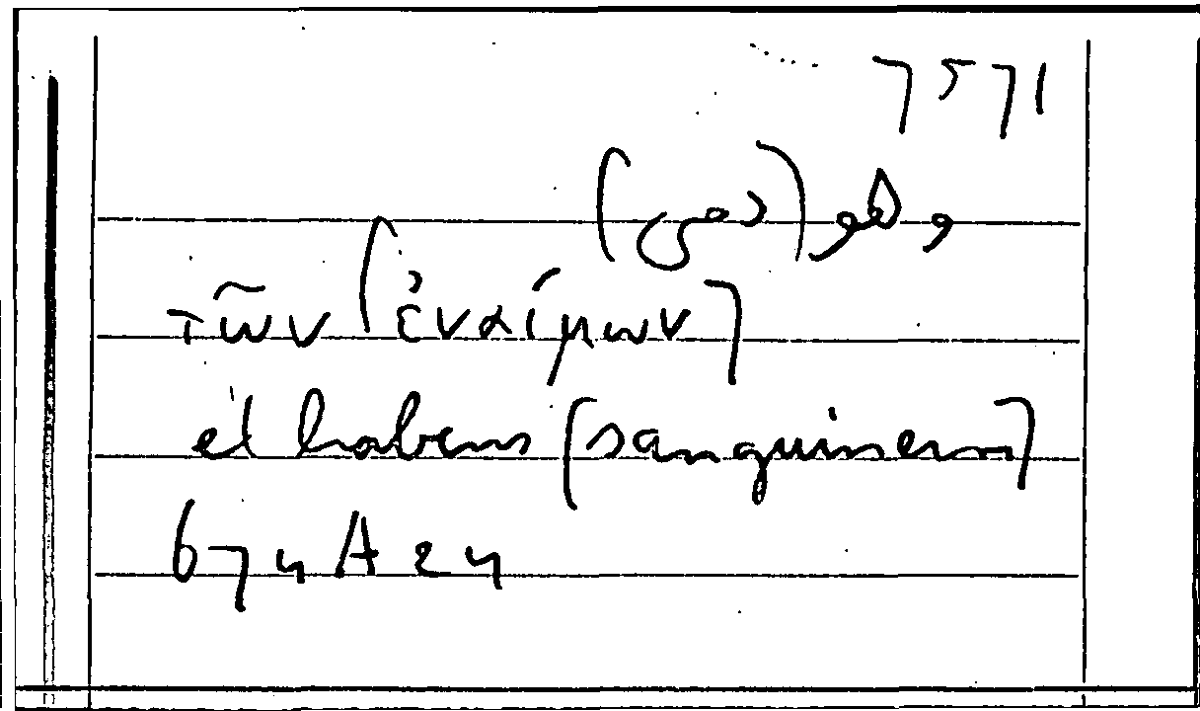 7571
τῶν [ἐναίμων]
et habens [sanguinem]
674A24